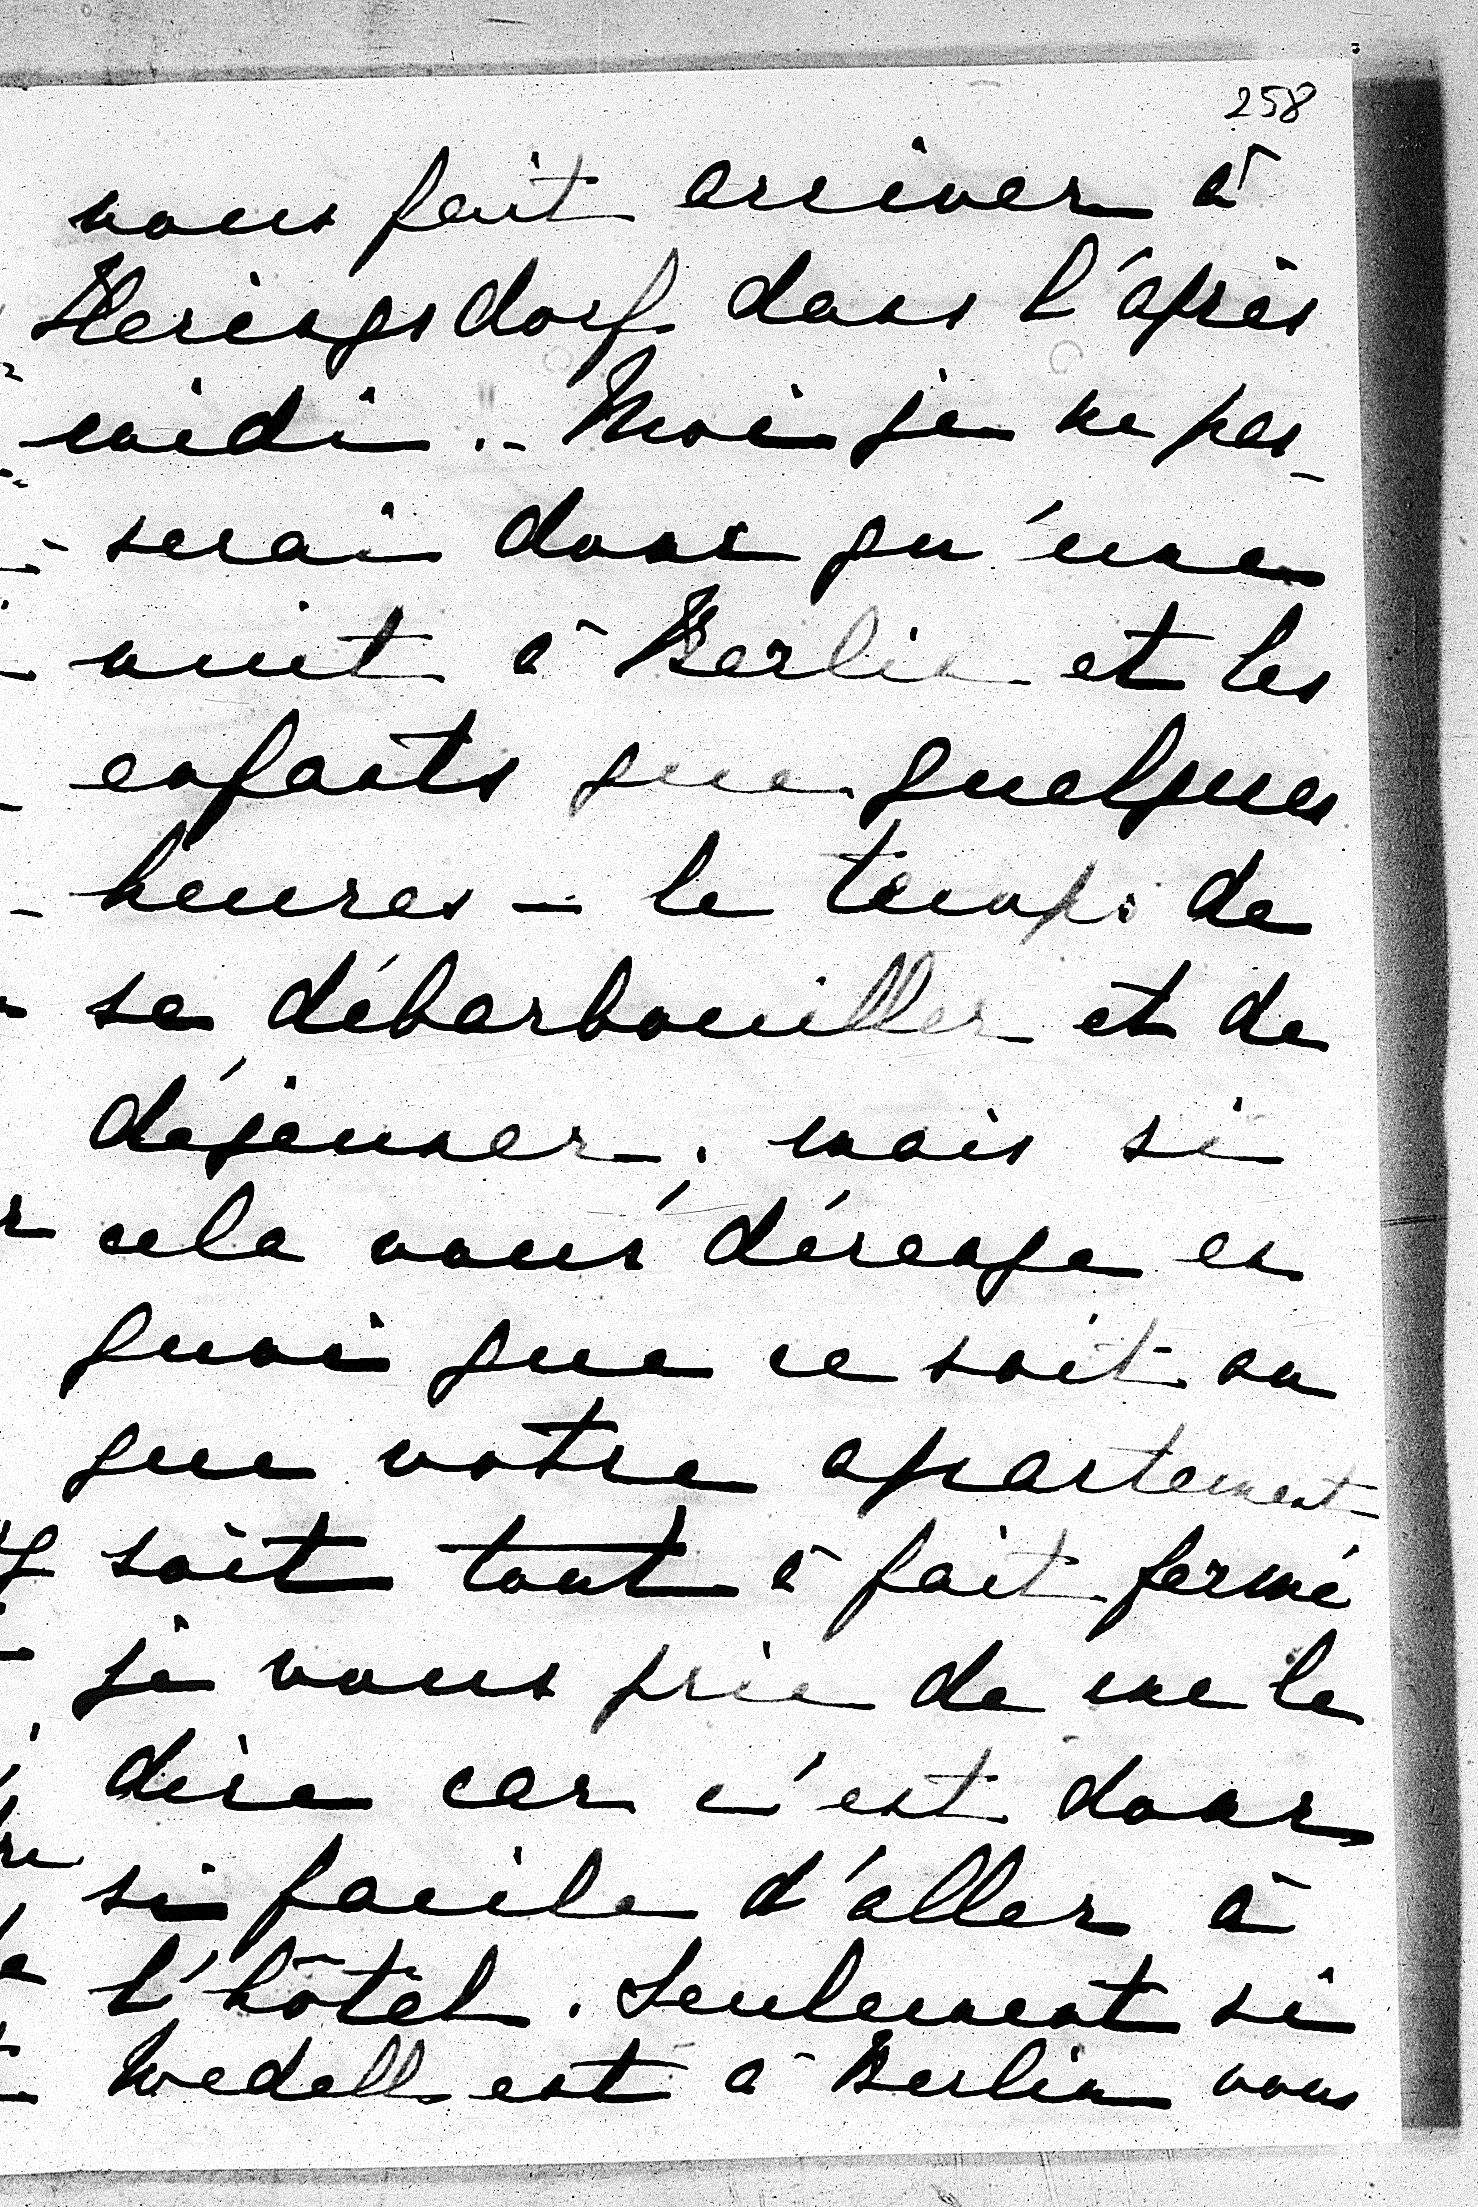 258
nous fait arriver à
Heringsdorf dans l'après
midi.- Moi je ne pas_
serai donc qu'une
nuit à Berlin et les
enfants que quelques
heures – le temps de
se débarbouiller et de
déjeuner; mais si
cela vous dérange en
quoi que ce soit ou
que votre apartement
soit tout à fait fermé
je vous prie de me le
dire car c'est donc
si facile d'aller à
l'hôtel. Seulement si
Wedell est à Berlin vous